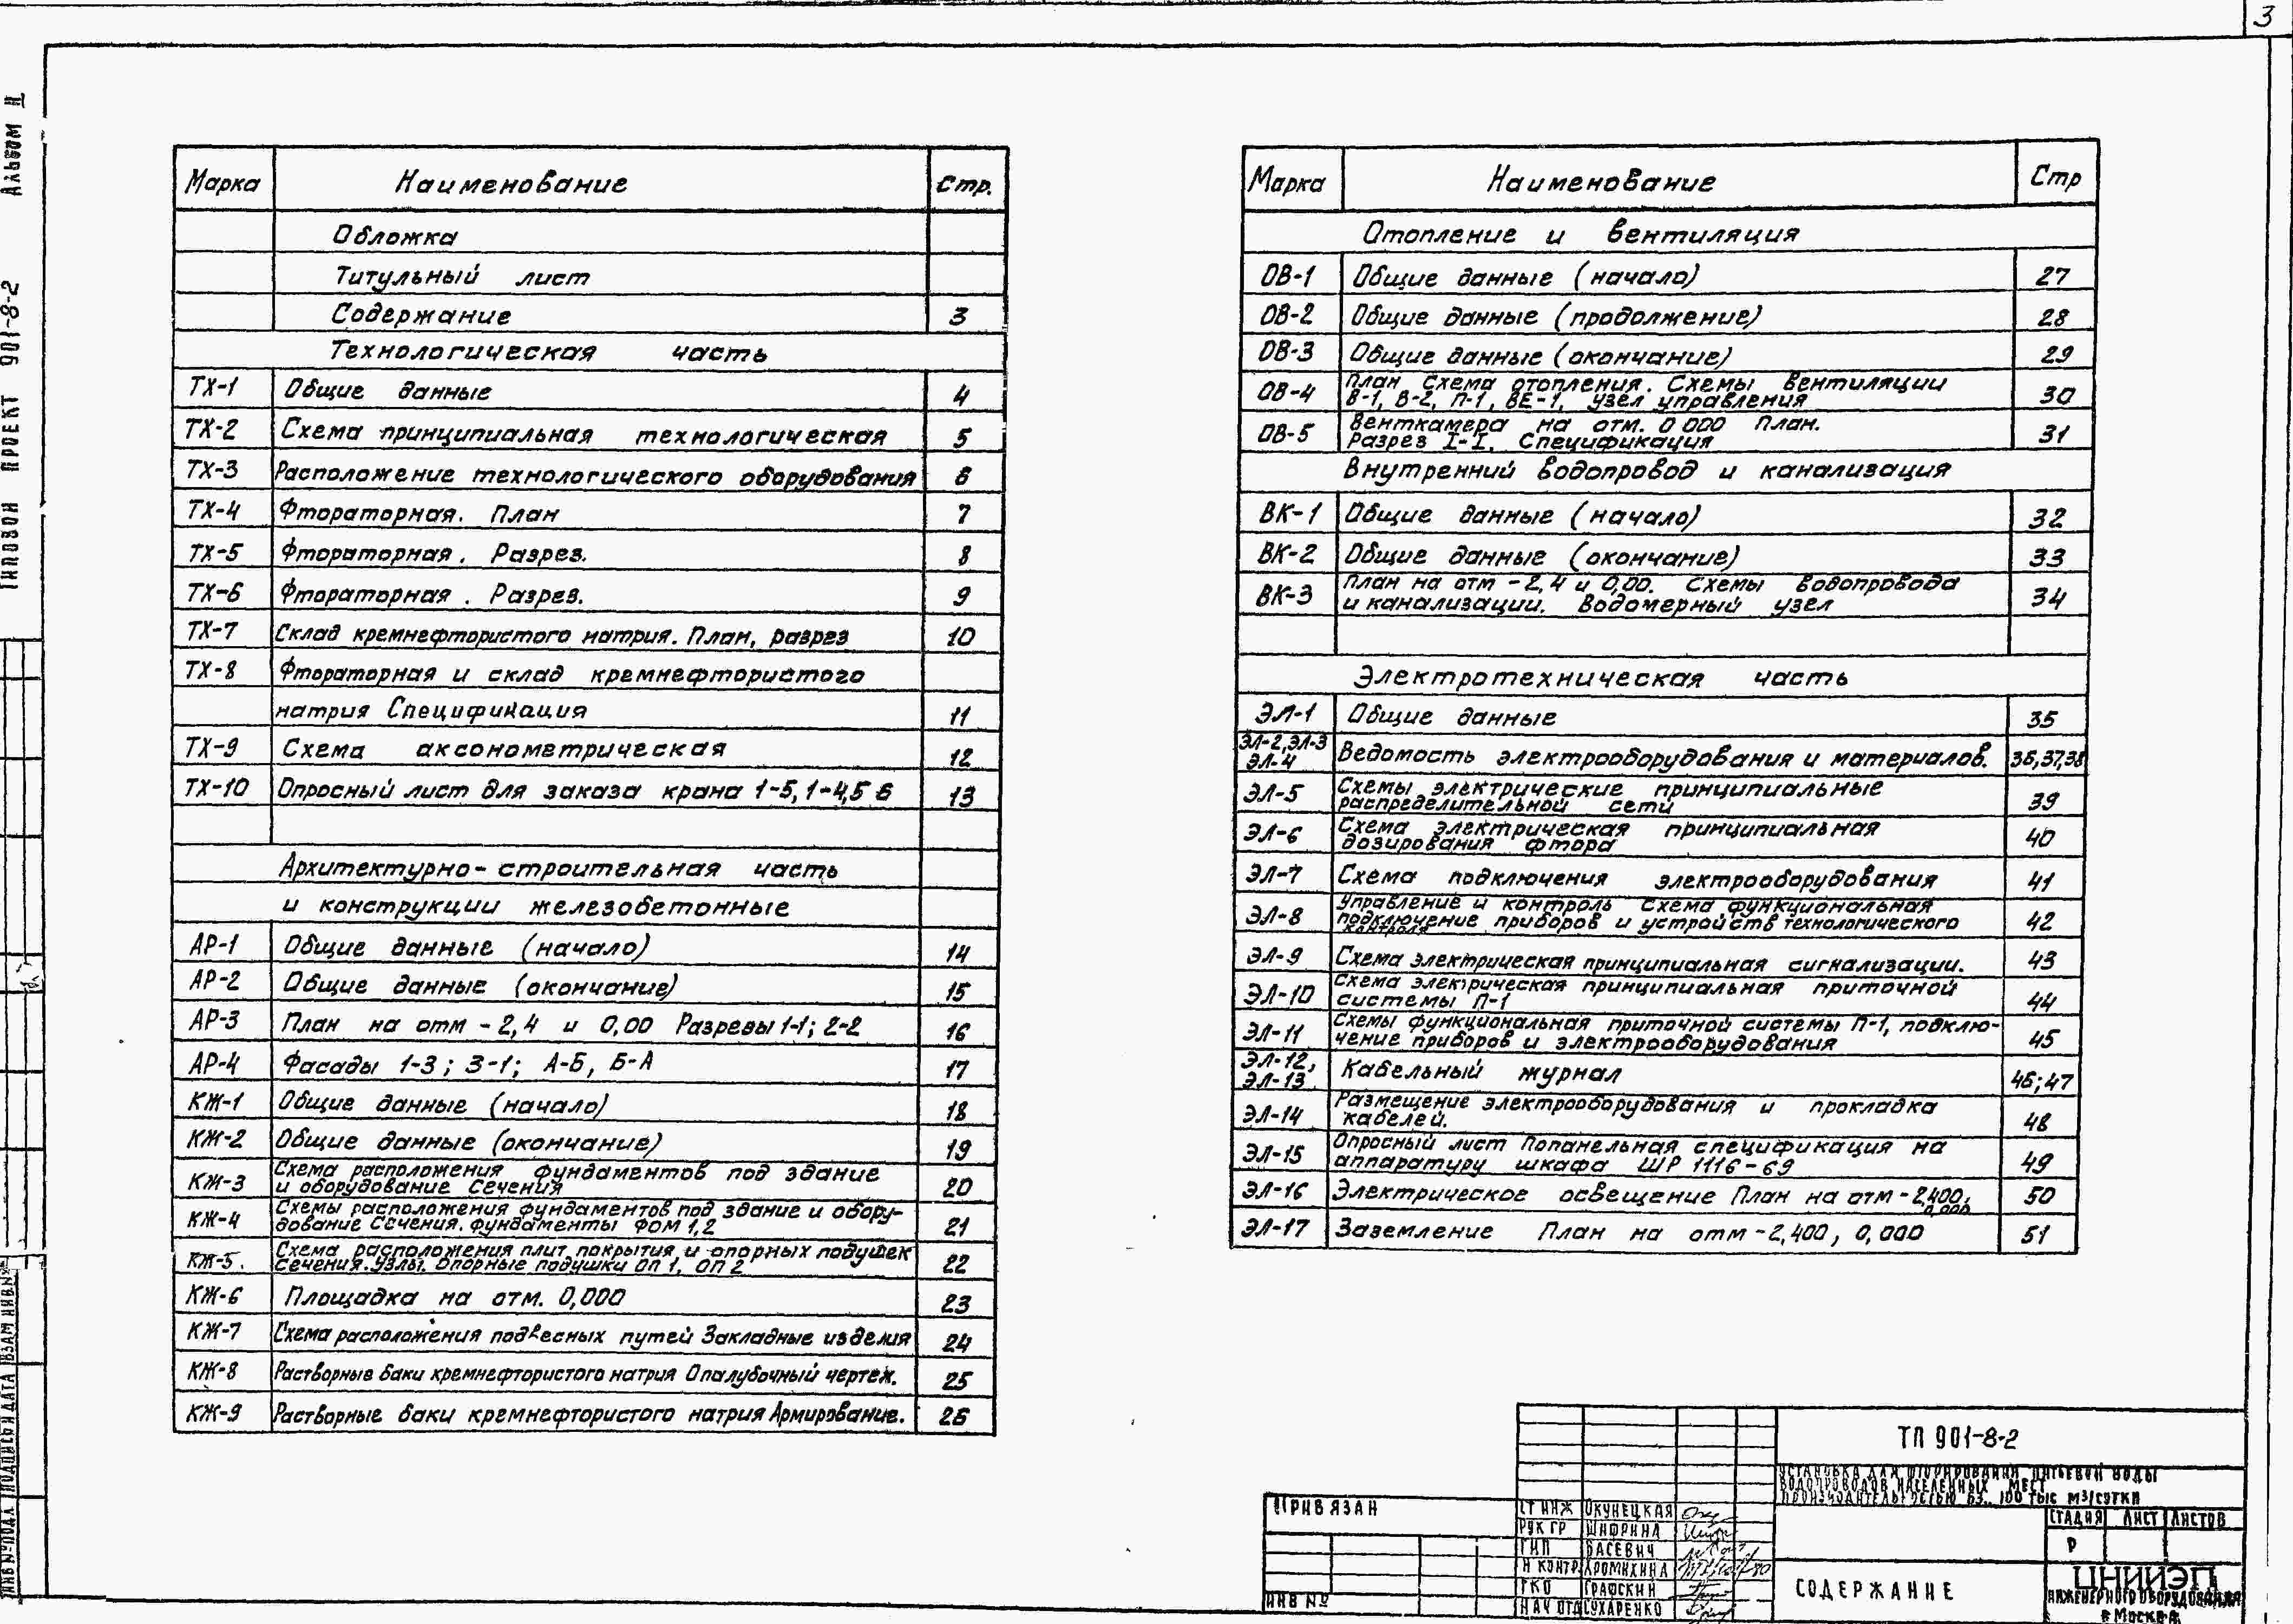 3
Альбом II
Типовой проект 901-8-2
Марка Наименование Стр.
Обложка
Титульный лист
Содержание 3
Технологическая часть
ТХ-1 Общие данные 4
ТХ-2 Схема принципиальная технологическая 5
ТХ-3 Расположение технологического оборудования 6
ТХ-4 Фтораторная. План 7
ТХ-5 Фтораторная. Разрез. 8
ТХ-6 Фтораторная. Разрез. 9
ТХ-7 Склад кремнефтористого натрия. План, разрез 10
ТХ-8 Фтораторная и склад кремнефтористого
натрия Спецификация 11
ТХ-9 Схема аксонометрическая 12
ТХ-10 Опросный лист для заказа крана 1-5, 1-4,5 6 13
Архитектурно-строительная часть
и конструкции железобетонные
АР-1 Общие данные (начало) 14
АР-2 Общие данные (окончание) 15
АР-3 План на отм -2,4 и 0,00 Разрезы 1-1; 2-2 16
АР-4 Фасады 1-3; 3-1; А-Б, Б-А 17
КЖ-1 Общие данные (начало) 18
КЖ-2 Общие данные (окончание) 19
КЖ-3 Схема расположения фундаментов под здание
и оборудование Сечения 20
КЖ-4 Схемы расположения фундаментов под здание и обору-
дование Сечения. Фундаменты ФОМ 1,2 21
КЖ-5. Схема расположения плит покрытия и опорных подушек
Сечения. Узлы. Опорные подушки ОП 1, ОП 2 22
КЖ-6 Площадка на отм. 0,000 23
КЖ-7 Схема расположения подвесных путей Закладные изделия 24
КЖ-8 Растворные баки кремнефтористого натрия Опалубочный чертеж. 25
КЖ-9 Растворные баки кремнефтористого натрия Армирование. 26
Марка Наименование Стр
Отопление и вентиляция
ОВ-1 Общие данные (начало) 27
ОВ-2 Общие данные (продолжение) 28
ОВ-3 Общие данные (окончание) 29
ОВ-4 План, схема отопления. Схемы вентиляции
В-1, В-2, П-1, ВЕ-1, узел управления 30
ОВ-5 Венткамера на отм. 0 000 План.
Разрез I-I. Спецификация 31
Внутренний водопровод и канализация
ВК-1 Общие данные (начало) 32
ВК-2 Общие данные (окончание) 33
ВК-3 План на отм -2,4 и 0,00. Схемы водопровода
и канализации. Водомерный узел 34
Электротехническая часть
ЭЛ-1 Общие данные 35
ЭЛ-2, ЭЛ-3
ЭЛ-4 Ведомость электрооборудования и материалов. 36,37,38
ЭЛ-5 Схемы электрические принципиальные
распределительной сети 39
ЭЛ-6 Схема электрическая принципиальная
дозирования фтора 40
ЭЛ-7 Схема подключения электрооборудования 41
ЭЛ-8 Управление и контроль Схема функциональная
подключение приборов и устройств технологического
контроля 42
ЭЛ-9 Схема электрическая принципиальная сигнализации. 43
ЭЛ-10 Схема электрическая принципиальная приточной
системы П-1 44
ЭЛ-11 Схемы функциональная приточной системы П-1, подклю-
чение приборов и электрооборудования 45
ЭЛ-12,
ЭЛ-13 Кабельный журнал 46;47
ЭЛ-14 Размещение электрооборудования и прокладка
кабелей. 48
ЭЛ-15 Опросный лист Попанельная спецификация на
аппаратуру шкафа ШР 1116-69 49
ЭЛ-16 Электрическое освещение План на отм -2,400,
0,000 50
ЭЛ-17 Заземление План на отм -2,400, 0,000 51
Инв № подл Подпись и дата Взам инв №
Привязан
Инв №
Ст инж Окунецкая
Рук гр Шифрина
ГИП Басевич
Н контр Хромихина
ГКО Графский
Нач отд Сухаренко
ТП 901-8-2
Установка для фторирования питьевой воды
водопроводов населенных мест
производительностью 63.. 100 тыс м3/сутки
Стадия Лист Листов
Р
Содержание
ЦНИИЭП
инженерного оборудования
г Москва